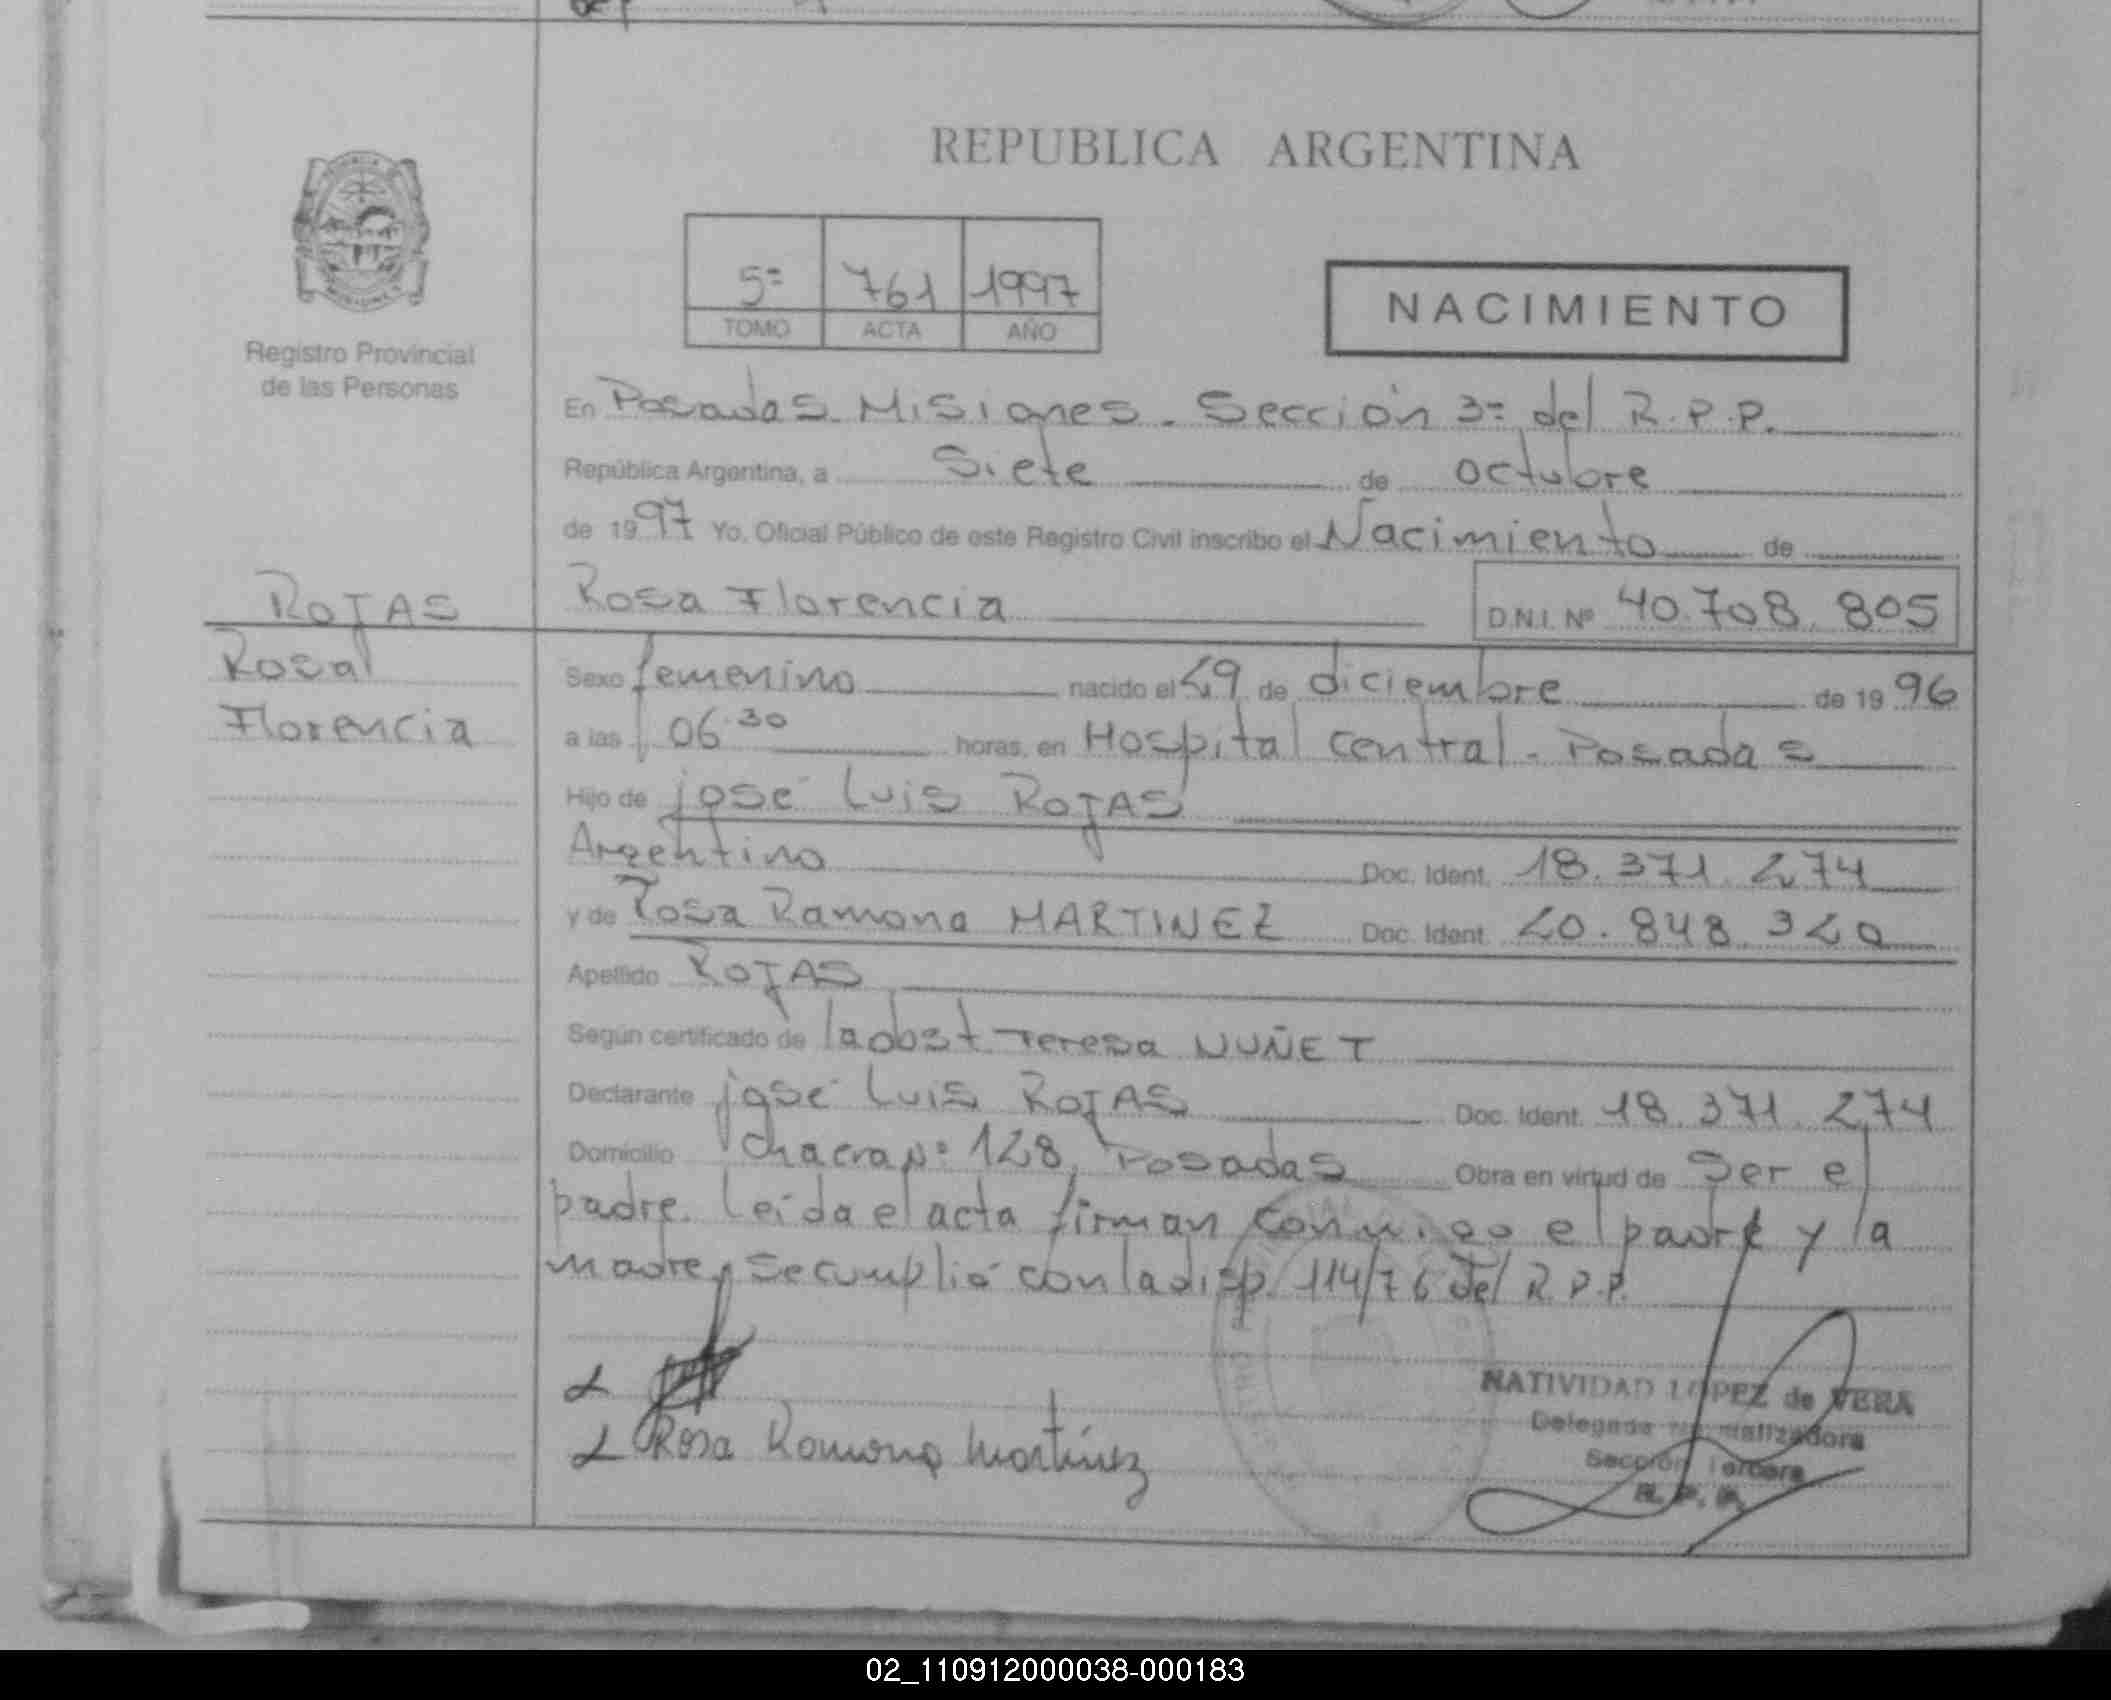 REPUBLICA ARGENTINA
5º 761 1997
TOMO ACTA AÑO
NACIMIENTO
Registro Provincial
de las Personas
En Posadas Misiones. Sección 3º del R.P.P.
República Argentina, a Siete de octubre
de 1997 Yo, Oficial Público de este Registro Civil inscribo el Nacimiento de
ROJAS Rosa Florencia D.N.I. Nº 40.708.805
Rosa Sexo femenino nacido el 29 de diciembre de 1996
Florencia a las 06 30 horas, en Hospital central - Posadas
Hijo de josé Luis ROJAS
Argentino Doc. Ident. 18.371.274
y de Rosa Ramona MARTINEZ Doc. Ident. 20.848.320
Apellido ROJAS
Según certificado de la obst Teresa NUÑET
Declarante josé Luis ROJAS Doc. Ident. 18.371.274
Domicilio Chacra Nº 128, Posadas Obra en virtud de Ser el
padre. Leída el acta firman conmigo el padre y la
madre, se cumplió con la disp. 114/76 del R.P.P.
NATIVIDAD LOPEZ de VERA
Delegada Normalizadora
Sección Tercera
R. P. P.
Rosa Ramona Martínez
02_110912000038-000183